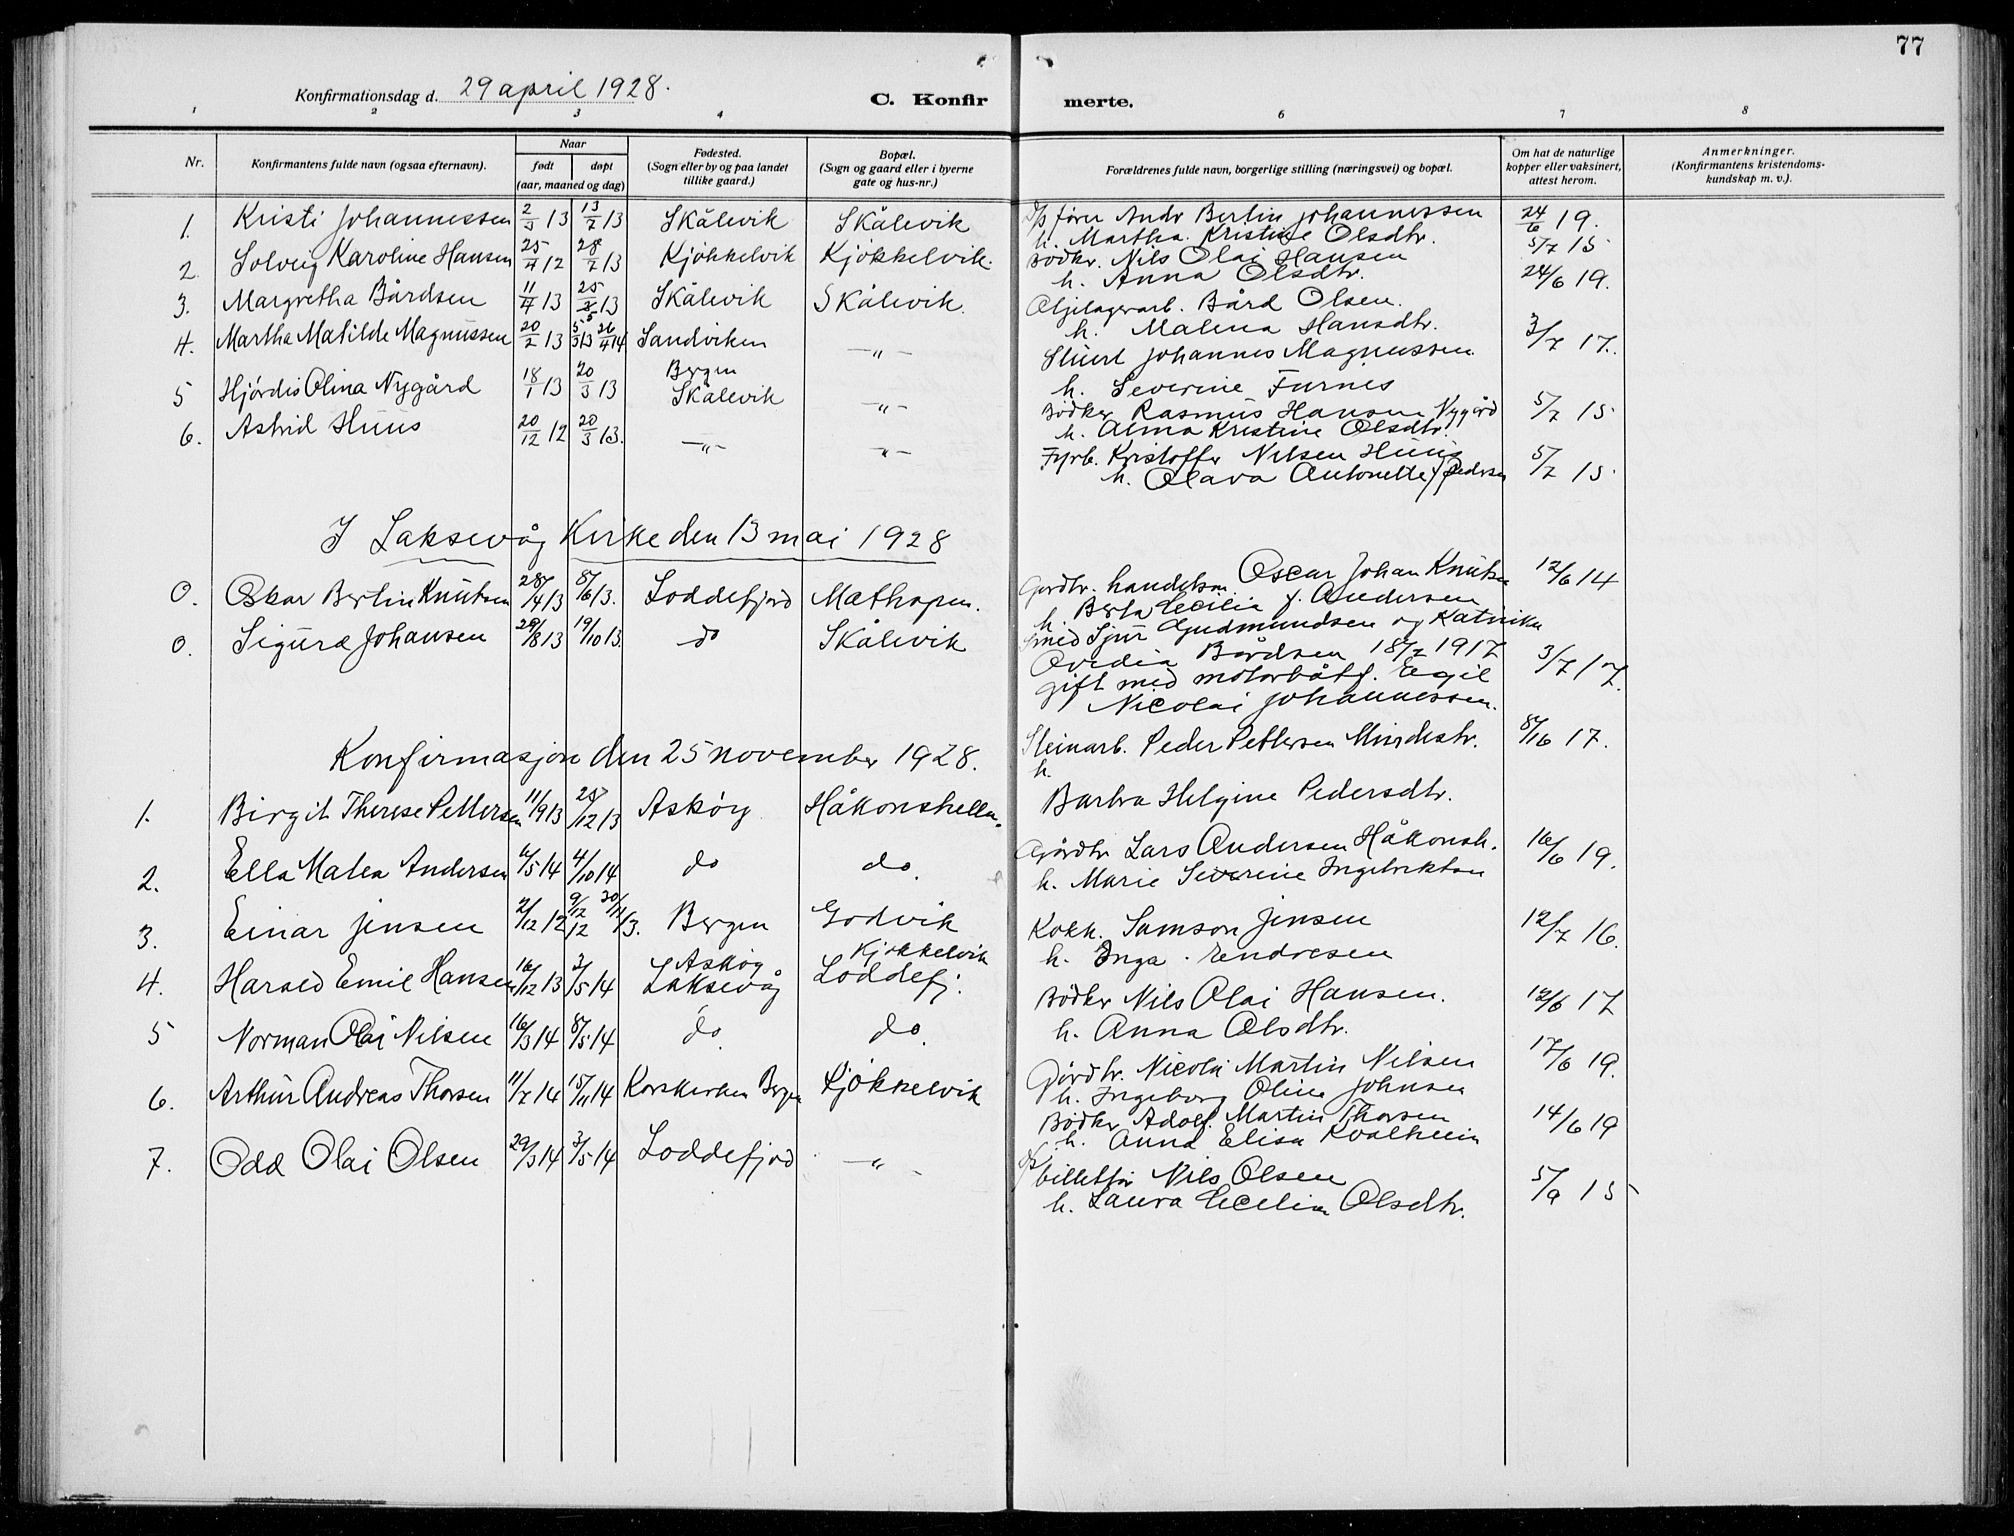 77
Konfirmationsdag d. 29 april 1928.
C. Konfirmerte.
1 2 3 4 6 7 8
Nr.
Konfirmantens fulde navn (ogsaa efternavn).
Naar
født døpt
(aar, maaned og dag)
Fødested.
(Sogn eller by og paa landet
tillike gaard.)
Bopæl.
(Sogn og gaard eller i byerne
gate og hus-nr.)
Forældrenes fulde navn, borgerlige stilling (næringsvei) og bopæl.
Om hat de naturlige
kopper eller vaksinert,
attest herom.
Anmerkninger.
(Konfirmantens kristendoms-
kundskap m. v.).
1. Kristi Johannessen 2/5 13 13/7 13 Skålevik Skålevik
D/s fører Andr Bertin Johannessen 24/6 19.
h. Martha Kristine Olsdtr.
2. Solveig Karoline Hansen 25/4 12 28/7 13 Kjökkelvik Kjökkelvik.
Bödker. Nils Olai Hansen 5/7 15
h. Anna Olsdtr.
3. Margretha Bårdsen 11/4 13 25/5 13 Skålevik Skålevik.
Oljelagerarb. Bård Olsen. 24/6 19.
h. Malena Hansdtr.
4. Martha Matilde Magnussen 20/2 13 5/3 13 26/4 14 Sandviken Bergen -"-
Stuert Johannes Magnussen 3/7 17.
h. Severine Furnes
5 Hjördis Olina Nygård 18/1 13 20/3 13 Skålevik -"-
Bödker Rasmus Hansen Nygård 5/7 15
h. Alma Kristine Olsdtr.
6. Astrid Huus 20/12 12 20/3 13. -"- -"-
Fyrb. Kristoffer Nilsen Huus 5/7 15
h. Olava Antonette f. Pedersen
I Laksevåg Kirke den 13 mai 1928
0. Oskar Bertin Knutsen 28/4 13 8/6 13. Loddefjord Mathopen.
Gordbr. handelsm. Oscar Johan Knutsen 12/6 14
h. Berta Cecilia f. Andersen
0. Sigurd Johansen 28/8 13 19/10 13. do Skålevik
Smed Sjur Gudmundsen og Katrine
Ovedia Bårdsen 18/7 1917 3/7 17.
gift med motorbåtf. Egil
Nicolai Johannessen.
Konfirmasjon den 25 november 1928.
1. Birgit Therese Pettersen 11/9 13 25/12 13 Asköy Håkonshella.
Steinarb. Peder Pettersen Mindestr. 8/16 17.
h.
Barbra Helgine Pedersdtr.
2. Ella Matea Andersen 6/5 14 4/10 14 do do.
Gårdbr Lars Andersen Håkonsh. 16/6 19.
h. Marie Severine Ingebrektsen
3. Einar Jensen 2/12 12 9/12 12 30/11 13. Bergen Godvik
Kokk. Samson Jensen 12/7 16.
h. Inga Endresen
4. Harald Emil Hansen 16/12 13 3/5 14 Asköy Laksevåg Kjökkelvik Loddefj.
Bödker Nils Olai Hansen. 12/6 17
h. Anna Olsdtr.
5 Norman Olai Nilsen 16/3 14 8/5 14 do. do.
Gårdbr. Nicolai Martin Nilsen 17/6 19.
h. Ingeborg Oline Johnsen
6. Arthur Andreas Thorsen 11/7 14 15/11 14 Korskirken Bergen Kjökkelvik
Bödker Adolf Martin Thorsen 14/6 19
h. Anna Elisa Kvalheim
7. Odd Olai Olsen 29/3 14 3/5 14 Loddefjord -"-
D/s billettør Nils Olsen 5/9 15
h. Laura Cecilia Olsdtr.